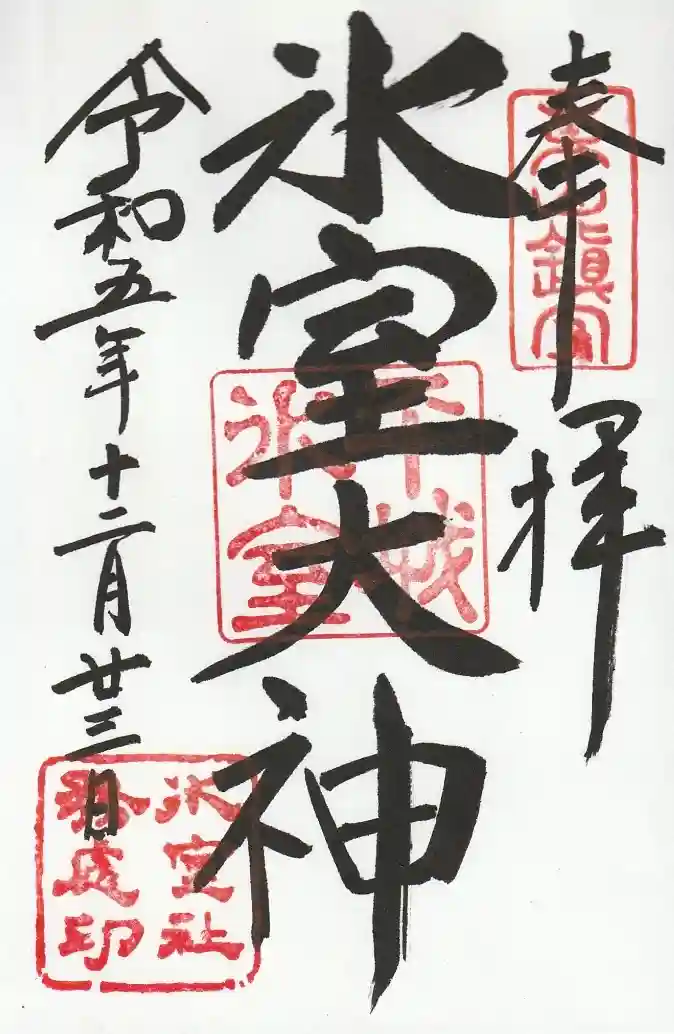 奉拝
氷室大神
平城
氷室
令和五年十二月廿三日
氷室社
印